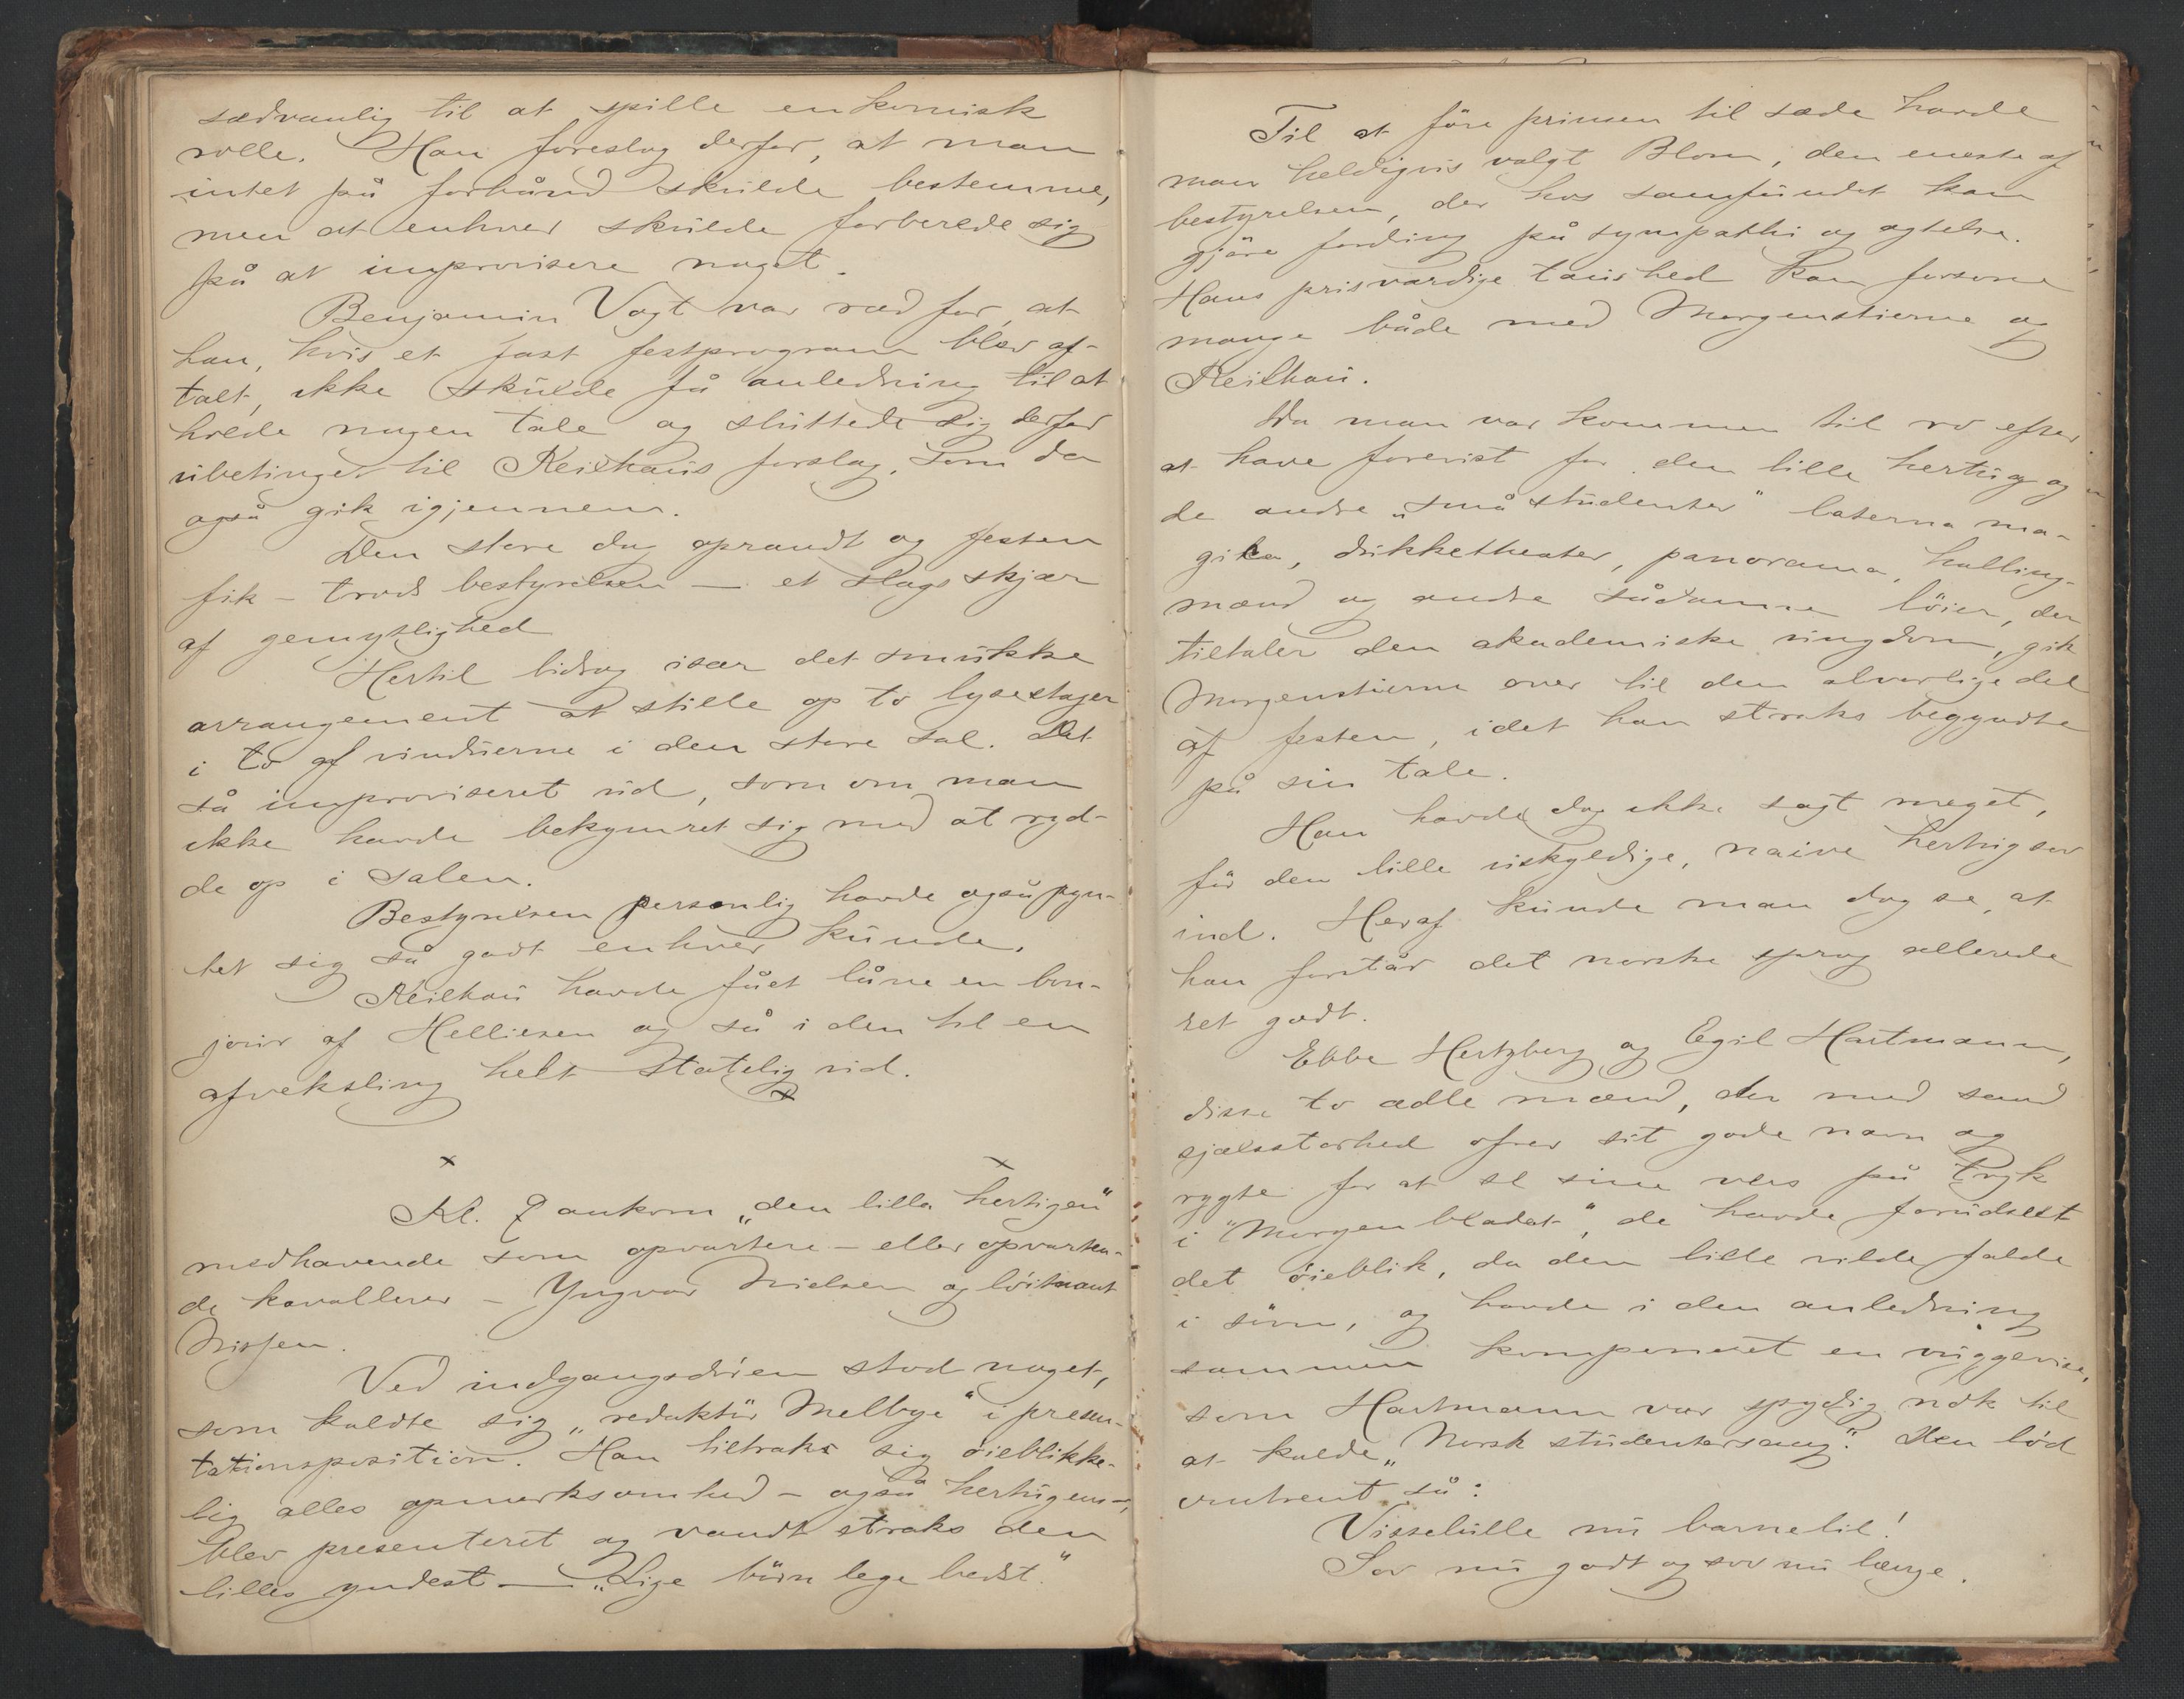 sædvanlig til at spille en komisk
rolle. Han foreslog derfor, at man
intet på forhånd skulde bestemme,
men at enhver skulde forberede sig
på at improvisere noget.
Benjamin Vogt var ræd for, at
han, hvis et fast festprogram blev af-
talt, ikke skulde få anledning til at
holde nogen tale og sluttede sig derfor
ubetinget til Keilhaus forslag, som da
også gik igjennem.
Den store dag oprandt og festen
fik – trods bestyrelsen — et slags skjær
af gemytlighed
Hertil bidrog især det smukke
arrangement at stille op to lysestager
i to af vinduerne i den store sal. Det
så improviseret ud, som om man
ikke havde bekymret sig med at ryd-
de op i salen.
Bestyrelsen personlig havde også pyn-
tet sig så godt enhver kunde.
Keilhau havde fået låne en bon-
jour af Helliesen og så i den til en
afveksling helt statelig ud.
x
x x
Kl. 9 ankom „den lilla hertigen"
medhavende som opvartere – eller opvarten-
de kavallerer – Yngvar Nielsen og löitnant
Nissen.
Ved indgangsdören stod noget,
som kaldte sig „redaktör Melbye" i presen-
tationsposition. Han tiltrak sig öieblikke-
lig alles opmerksomhed – også hertugens –,
blev presenteret og vandt straks den
lilles yndest — „Lige börn lege bedst."
Til at före prinsen til sæde havde
man heldigvis valgt Blom, den eneste af
bestyrelsen, der hos samfundet kan
gjöre fordring på sympathi og agtelse.
Hans prisværdige taushed kan forsone
mange både med Morgenstierne og
Keilhau.
Da man var kommen til ro efter
at have forevist for den lille hertug og
de andre „små studenter" laterna ma-
gika, dukketheater, panorama, halling-
mænd og andre sådanne löier, der
tiltaler den akademiske ungdom, gik
Morgenstierne over til den alvorlige del
af festen, idet han straks begyndte
på sin tale.
Han havde dog ikke sagt meget,
för den lille uskyldige, naive hertug sov
ind. Heraf kunde man dog se, at
han forstår det norske sprog allerede
ret godt.
Ebbe Hertzberg og Egil Hartmann,
disse to ædle mænd, der med sand
sjælsstorhed ofrer sit gode navn og
rygte for at se sine vers på tryk
i "Morgenbladet", de havde forudseet
det öieblik, da den lille vilde falde
i sövn, og havde i den anledning
sammen komponeret en vuggevise,
som Hartmann var spydig nok til
at kalde „Norsk studentersang". Den löd
omtrent så:
Visselulle nu barnelil!
Sov nu godt og sov nu længe.